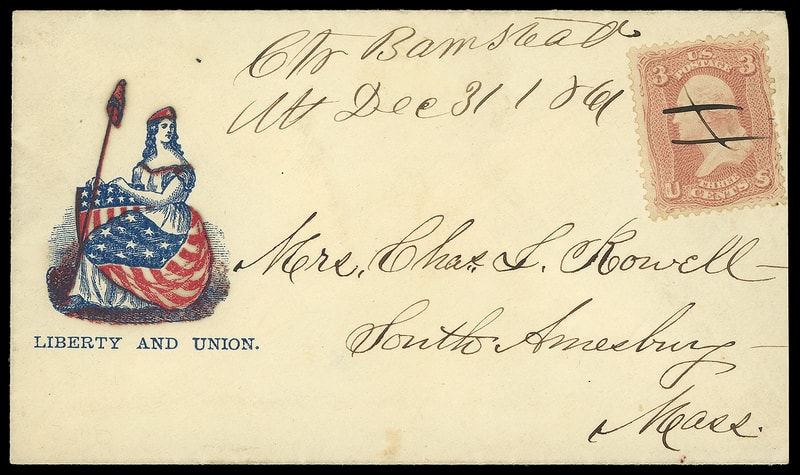 Ctr Barnstead
NH Dec 31 1861
3 U.S. POSTAGE 3
THREE
U CENTS S
Mrs. Chas. L. Rowell
South Amesbury
Mass.
LIBERTY AND UNION.